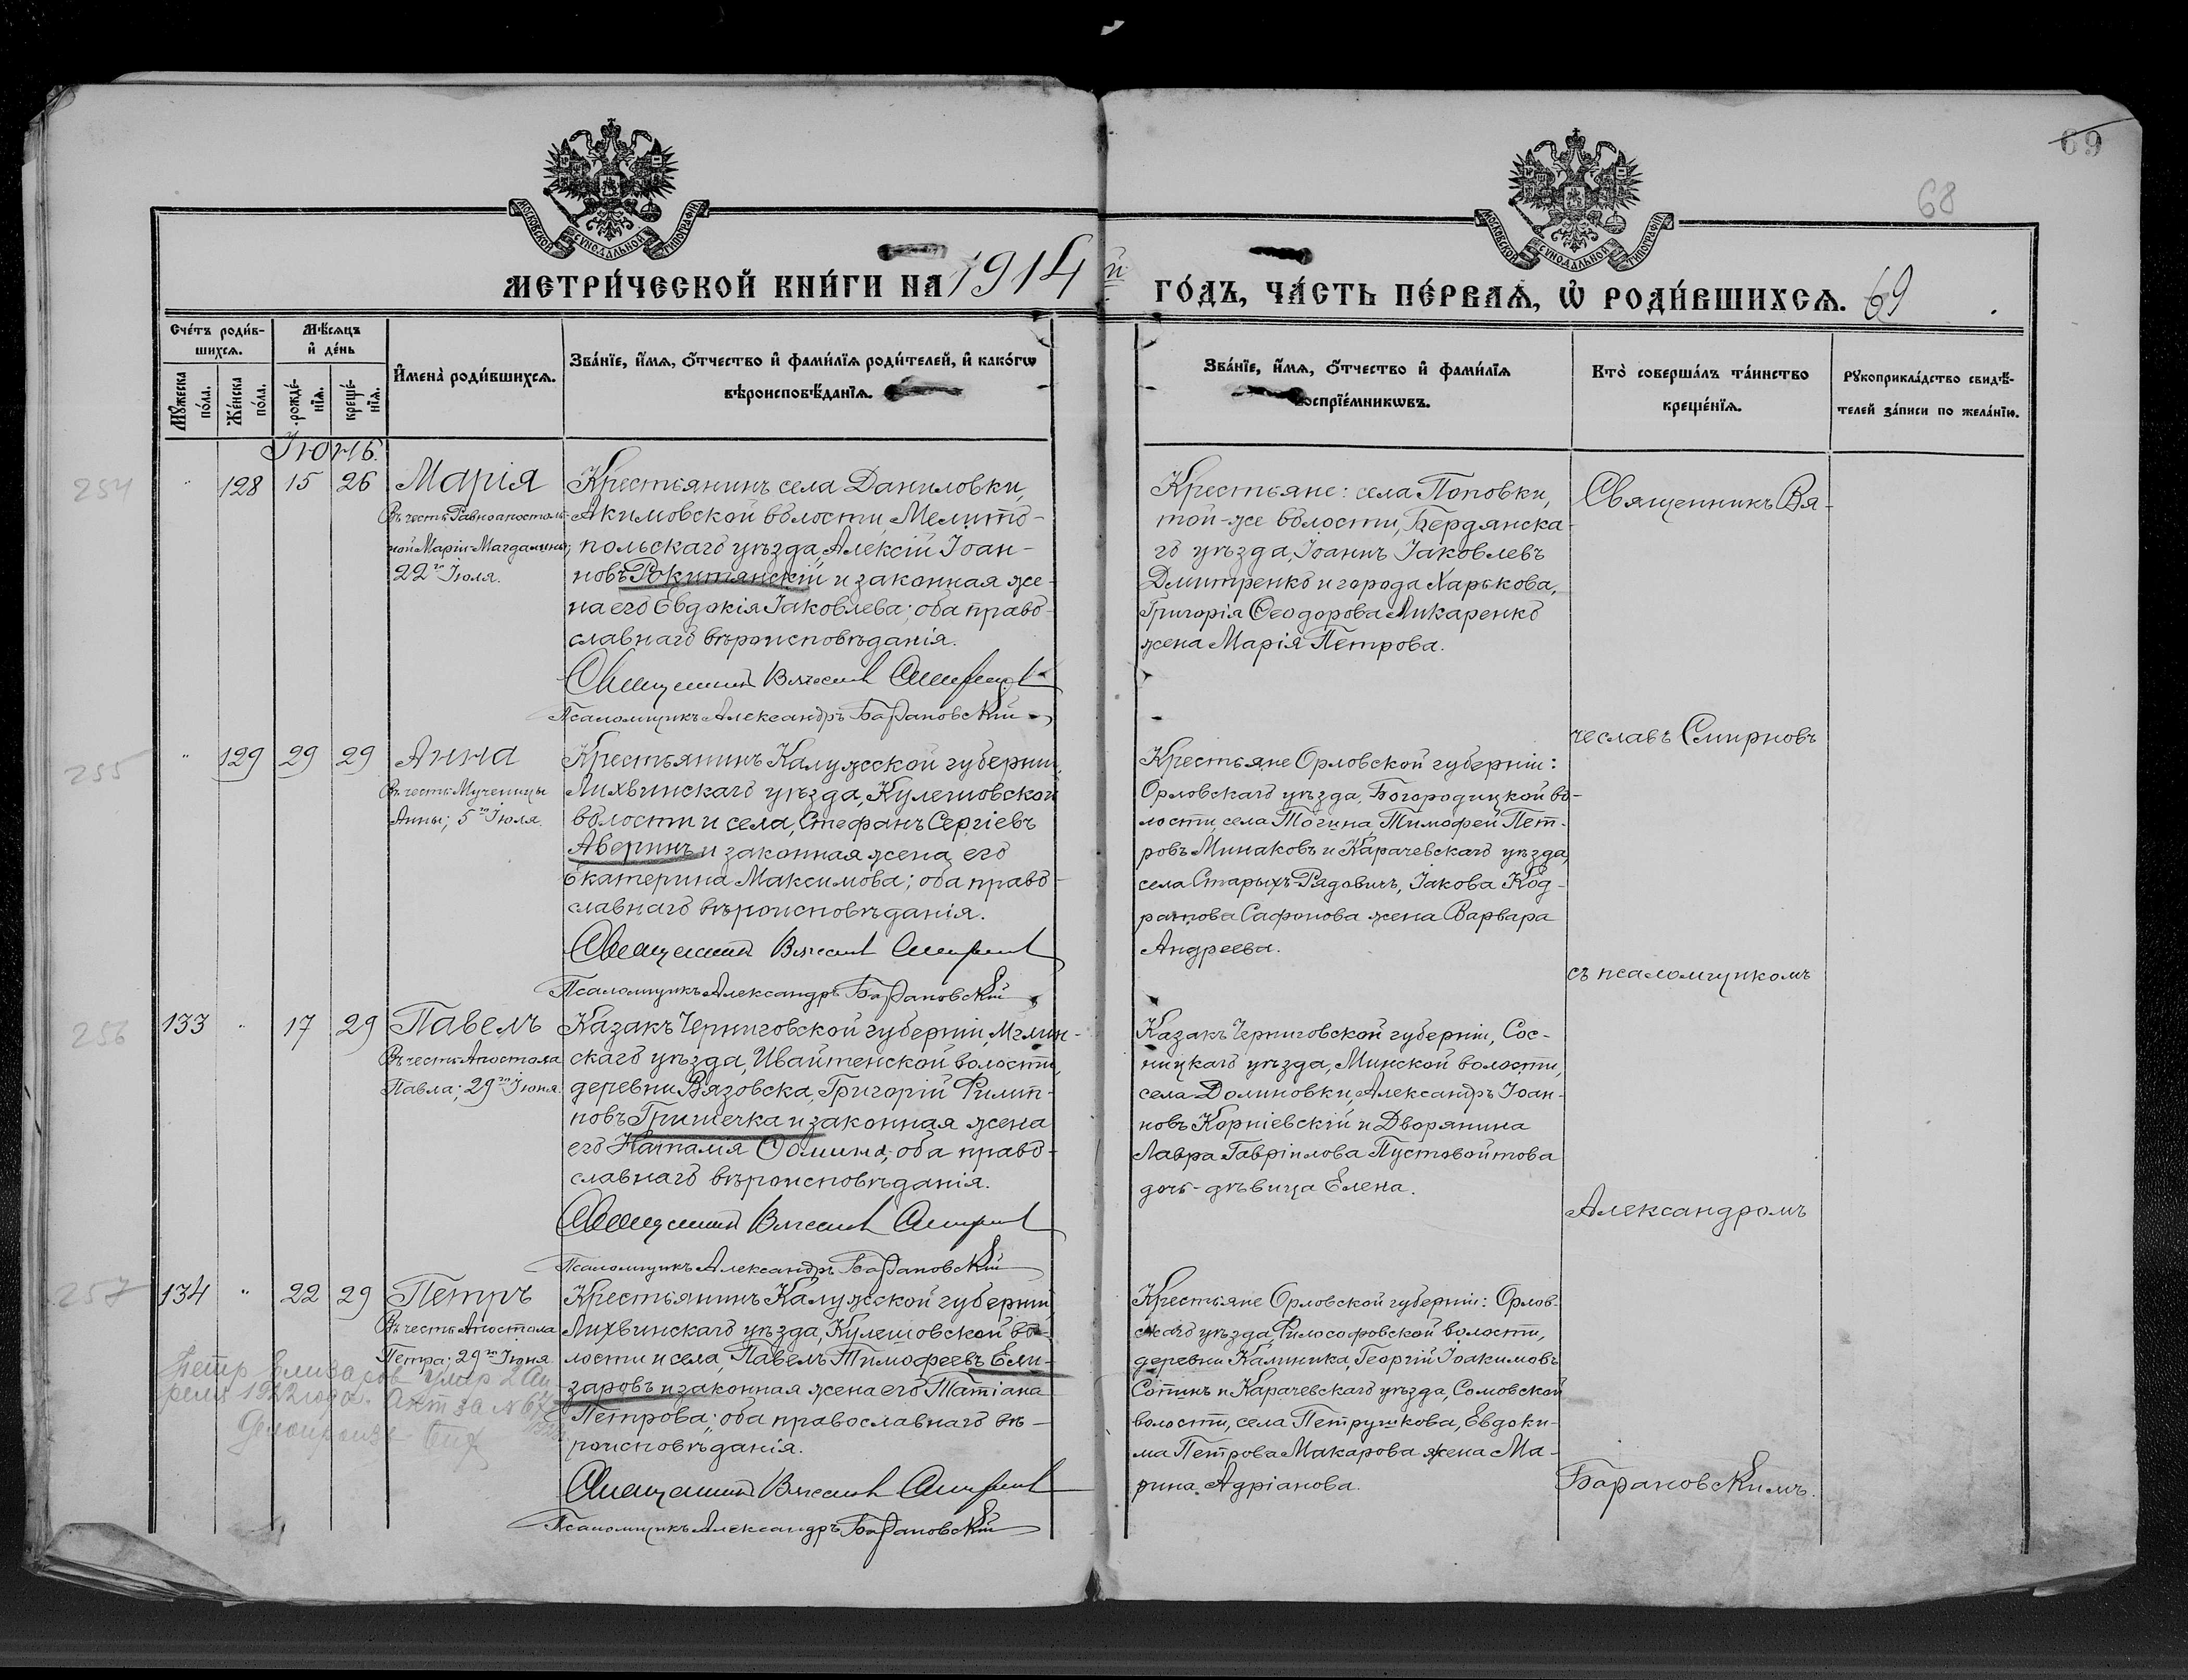 69
68
МОСКОВСКОЙ СѴНОДАЛЬНОЙ ТИПОГРАФІИ
МОСКОВСКОЙ СѴНОДАЛЬНОЙ ТИПОГРАФІИ
МЕТРИ́ЧЕСКОЙ КНИ́ГИ НА 1914 й ГО́ДЪ, ЧА́СТЬ ПЕ́РВАѦ, Ѡ҆ РОДИ́ВШИХСѦ. 69
Сче́тъ роди́в-
шихсѧ.
Мꙋ́жеска по́ла.
Же́нска по́ла.
Мѣ́сѧцъ
и҆ де́нь
рожде́-
нїѧ.
креще́-
нїѧ.
И҆мена̀ роди́вшихсѧ.
Зва́нїе, и҆́мѧ, ѻ҆́тчество и҆ фами́лїѧ роди́телей, и҆ како́гѡ
вѣроисповѣ́данїѧ.
Зва́нїе, и҆́мѧ, ѻ҆́тчество и҆ фами́лїѧ
воспрїе́мникѡвъ.
Кто̀ соверша́лъ та́инство
креще́нїѧ.
Рꙋкоприкла́дство свидѣ́-
телей за́писи по жела́нїю.
Іюнь.
254
" 128 15 26
Марія
Въ честь Равноапостоль-
ной Маріи Магдалины;
22го Іюля.
Крестьянинъ села Даниловки,
Акимовской волости, Мелито-
польскаго уѣзда, Алексій Іоан-
новъ Рокитянскій и законная же-
на его Евдокія Іаковлева; оба право-
славнаго вѣроисповѣданія.
Священникъ Вячеславъ Смирновъ
Псаломщикъ Александръ Барановскій
Крестьяне: села Поповки,
той-же волости, Бердянска-
го уѣзда, Іоаннъ Іаковлевъ
Дмитренко и города Харькова,
Григорія Ѳеодорова Ликаренко
жена Марія Петрова.
Священникъ Вя-
чеславъ Смирновъ
255
" 129 29 29
Анна
Въ честь Мученицы
Анны; 5го Іюля.
Крестьянинъ Калужской губерніи,
Лихвинскаго уѣзда, Кулешовской
волости и села, Стефанъ Сергіевъ
Аверинъ и законная жена его
Екатерина Максимова; оба право-
славнаго вѣроисповѣданія.
Священникъ Вячеславъ Смирновъ
Псаломщикъ Александръ Барановскій
Крестьяне Орловской губерніи:
Орловскаго уѣзда, Богородицкой во-
лости, села Тогина, Тимофей Пет-
ровъ Минаковъ и Карачевскаго уѣзда,
села Старыхъ-Рядовичъ, Іакова Код-
ратова Сафонова жена Варвара
Андреева.
съ псаломщикомъ
256
133 " 17 29
Павелъ
Въ честь Апостола
Павла; 29го Іюня.
Казакъ Черниговской губерніи, Мглин-
скаго уѣзда, Ивайтенской волости,
деревни Вязовска, Григорій Филип-
повъ Гришечка и законная жена
его Наталія Ѳомина; оба право-
славнаго вѣроисповѣданія.
Священникъ Вячеславъ Смирновъ
Псаломщикъ Александръ Барановскій
Казакъ Черниговской губерніи, Сос-
ницкаго уѣзда, Минской волости,
села Долиновки, Александръ Іоан-
новъ Корніевскій и Дворянина
Лавра Гавріилова Пустовойтова
дочь-дѣвица Елена.
Александромъ
257
134 " 22 29
Петръ
Въ честь Апостола
Петра; 29го Іюня
Петр Елизаров умер 2 Ап
реля 1922 года. Акт за № 67
Крестьянинъ Калужской губерніи,
Лихвинскаго уѣзда, Кулешовской во-
лости и села, Павелъ Тимофеевъ Ели-
заровъ и законная жена его Татіана
Петрова; оба православнаго вѣ-
роисповѣданія.
Священникъ Вячеславъ Смирновъ
Псаломщикъ Александръ Барановскій
Крестьяне Орловской губерніи: Орлов-
скаго уѣзда, Философовской волости,
деревни Калинника, Георгій Іоакимовъ
Сотинъ и Карачевскаго уѣзда, Сомовской
волости, села Петрушкова, Евдоки-
ма Петрова Макарова жена Ма-
рина Адріанова.
Барановскимъ.